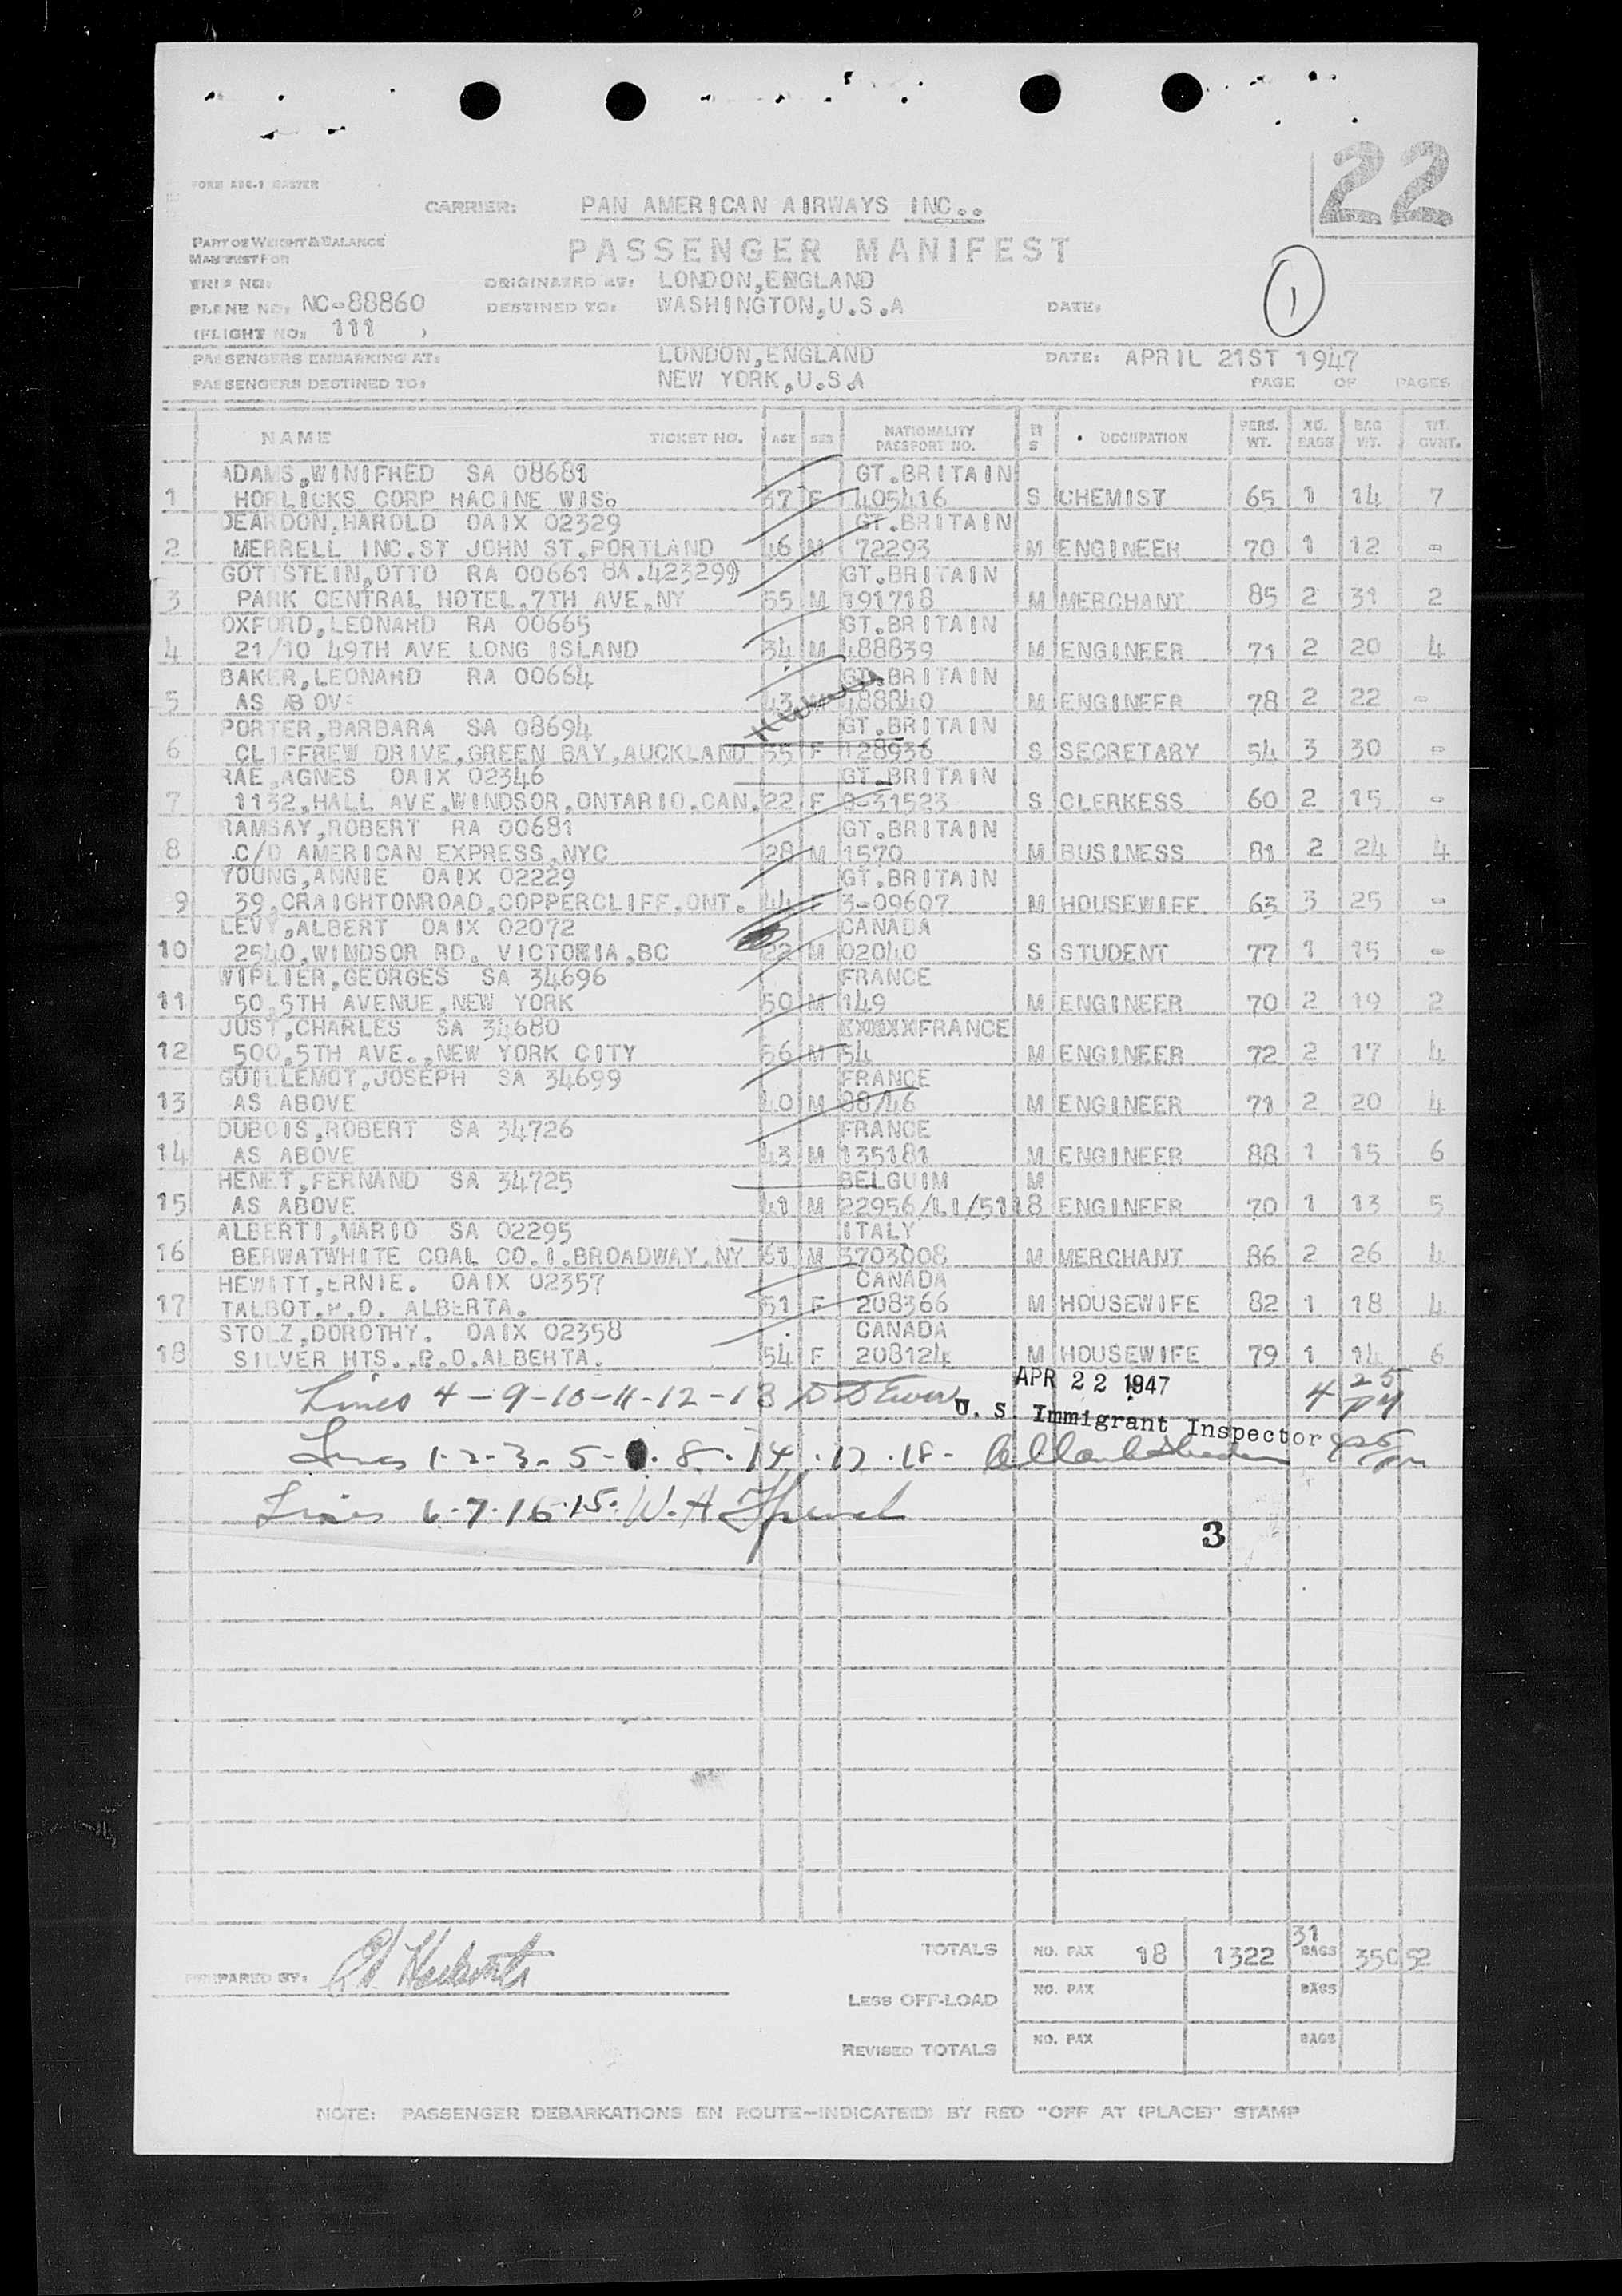 FORM ABC-1 MASTER
22
CARRIER: PAN AMERICAN AIRWAYS INC..
PART OF WEIGHT & BALANCE
MANIFEST FOR
PASSENGER MANIFEST
1
TRIP NO:
ORIGINATED AT: LONDON,ENGLAND
PLANE NO: NC-88860
DESTINED TO: WASHINGTON,U.S.A
DATE:
(FLIGHT NO: 111 )
PASSENGERS EMBARKING AT: LONDON,ENGLAND DATE: APRIL 21ST 1947
PASSENGERS DESTINED TO: NEW YORK,U.S.A PAGE OF PAGES
NAME TICKET NO. AGE SEX NATIONALITY PASSPORT NO. M S OCCUPATION PERS. WT. NO. BAGS BAG WT. WT. OVNT.
ADAMS,WINIFRED SA 08681 GT.BRITAIN
1 HORLICKS CORP RACINE WIS. 37 F 405416 S CHEMIST 65 1 14 7
DEARDON,HAROLD OAIX 02329 GT.BRITAIN
2 MERRELL INC.ST JOHN ST.PORTLAND 46 M 72293 M ENGINEER 70 1 12 -
GOTTSTEIN,OTTO RA 00661 BA.423299 GT.BRITAIN
3 PARK CENTRAL HOTEL,7TH AVE,NY 55 M 191718 M MERCHANT 85 2 31 2
OXFORD,LEONARD RA 00665 GT.BRITAIN
4 21/10 49TH AVE LONG ISLAND 34 M 488839 M ENGINEER 71 2 20 4
BAKER,LEONARD RA 00664 GT.BRITAIN
5 AS ABOVE 43 M 488840 M ENGINEER 78 2 22 -
PORTER,BARBARA SA 08694 GT.BRITAIN
6 CLIFFREW DRIVE,GREEN BAY,AUCKLAND 35 F 128936 S SECRETARY 54 3 30 -
RAE,AGNES OAIX 02346 GT.BRITAIN
7 1132,HALL AVE,WINDSOR,ONTARIO.CAN. 22 F 0-31523 S CLERKESS 60 2 15 -
RAMSAY,ROBERT RA 00681 GT.BRITAIN
8 C/O AMERICAN EXPRESS,NYC 28 M 1570 M BUSINESS 81 2 24 4
YOUNG,ANNIE OAIX 02229 GT.BRITAIN
9 39,CRAIGHTONROAD,COPPERCLIFF,ONT. 44 F 3-09607 M HOUSEWIFE 63 3 25 -
LEVY,ALBERT OAIX 02072 CANADA
10 2540,WINDSOR RD. VICTORIA,BC 22 M 02040 S STUDENT 77 1 15 -
WIPLIER,GEORGES SA 34696 FRANCE
11 50,5TH AVENUE,NEW YORK 50 M 149 M ENGINEER 70 2 19 2
JOST,CHARLES SA 34680 XXXXXFRANCE
12 500,5TH AVE.,NEW YORK CITY 56 M 54 M ENGINEER 72 2 17 4
GUILLEMOT,JOSEPH SA 34699 FRANCE
13 AS ABOVE 40 M 08/46 M ENGINEER 71 2 20 4
DUBOIS,ROBERT SA 34726 FRANCE
14 AS ABOVE 43 M 135181 M ENGINEER 88 1 15 6
HENET,FERNAND SA 34725 BELGUIM M
15 AS ABOVE 41 M 22956/LI/5118 ENGINEER 70 1 13 5
ALBERTI,MARIO SA 02295 ITALY
16 BERWATWHITE COAL CO.1.BROADWAY.NY 61 M 3703008 M MERCHANT 86 2 26 4
HEWITT,ERNIE. OAIX 02357 CANADA
17 TALBOT.P.O. ALBERTA. 51 F 208366 M HOUSEWIFE 82 1 18 4
STOLZ,DOROTHY. OAIX 02358 CANADA
18 SILVER HTS..P.O.ALBERTA. 54 F 208124 M HOUSEWIFE 79 1 14 6
Lines 4-9-10-11-12-13
APR 22 1947
4 25 PM
U. S. Immigrant Inspector
Lines 1-2-3-5- 8-14.17.18-
Lines 6-7-16-15. W.H.
3
TOTALS NO. PAX 18 1322 31 BAGS 350 52
PREPARED BY:
LESS OFF-LOAD NO. PAX BAGS
REVISED TOTALS NO. PAX BAGS
NOTE: PASSENGER DEBARKATIONS EN ROUTE-INDICATE(D) BY RED "OFF AT (PLACE)" STAMP